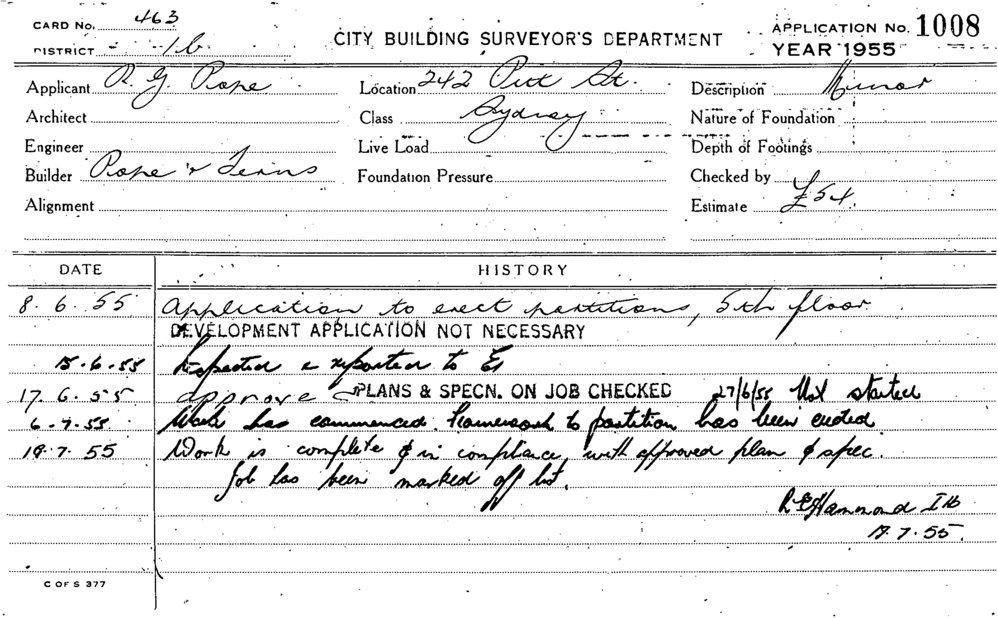 CARD No. 463
DISTRICT 1b
CITY BUILDING SURVEYOR'S DEPARTMENT
APPLICATION No. 1008
YEAR 1955
Applicant R. G. Rope Location 242 Pitt St. Description Minor
Architect Class Sydney Nature of Foundation
Engineer Live Load Depth of Footings
Builder Rope & Foundation Pressure Checked by
Alignment Estimate £54.
DATE HISTORY
8.6.55 Application to erect partitions, 5th floor.
DEVELOPMENT APPLICATION NOT NECESSARY
15.6.55 Inspected & reported to
17.6.55 approve PLANS & SPECN. ON JOB CHECKED 27/6/55 Not started
6.7.55 Work has commenced. Framework to partition has been erected
18.7.55 Work is complete & in compliance, with approved plan & spec.
Job has been marked off list.
R E Hammond
.7.55.
C OF S 377